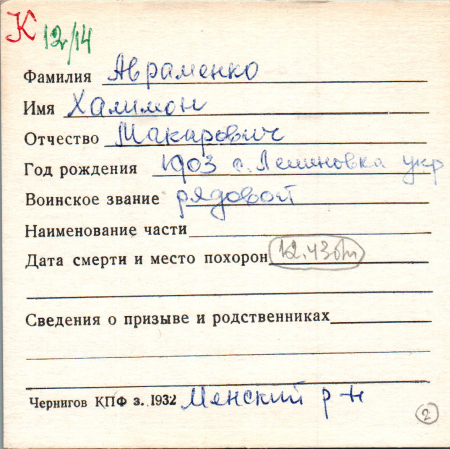 К 12/14
Фамилия Авраменко
Имя Халимон
Отчество Макарович
Год рождения 1903 с. Лениновка укр
Воинское звание рядовой
Наименование части
Дата смерти и место похорон 12.43бп
Сведения о призыве и родственниках
Чернигов КПФ з. 1932 Менский р-н
2